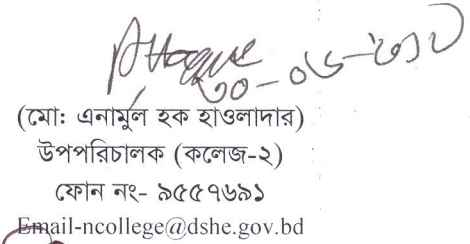 ৩০-০৬-২০১৮
(মো: এনামুল হক হাওলাদার)
উপপরিচালক (কলেজ-২)
ফোন নং- ৯৫৫৭৬৯১
Email-ncollege@dshe.gov.bd